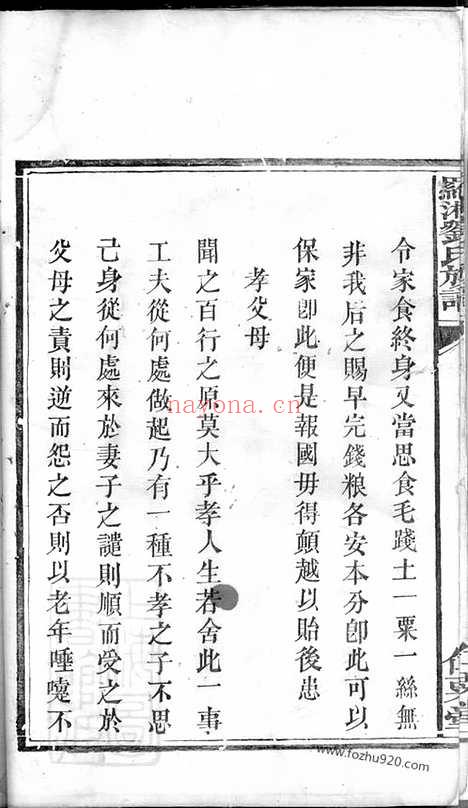 羅湘劉氏族譜
令家食終身又當思食毛踐土一粟一絲無
非我后之賜早完錢粮各安本分卽此可以
保家卽此便是報國毋得顛越以貽後患
孝父母
聞之百行之原莫大乎孝人生若舍此一事
工夫從何處做起乃有一種不孝之子不思
己身從何處來於妻子之譴則順而受之於
父母之責則逆而怨之否則以老年唾嚏不
nayona.cn
www.fozhu920.com